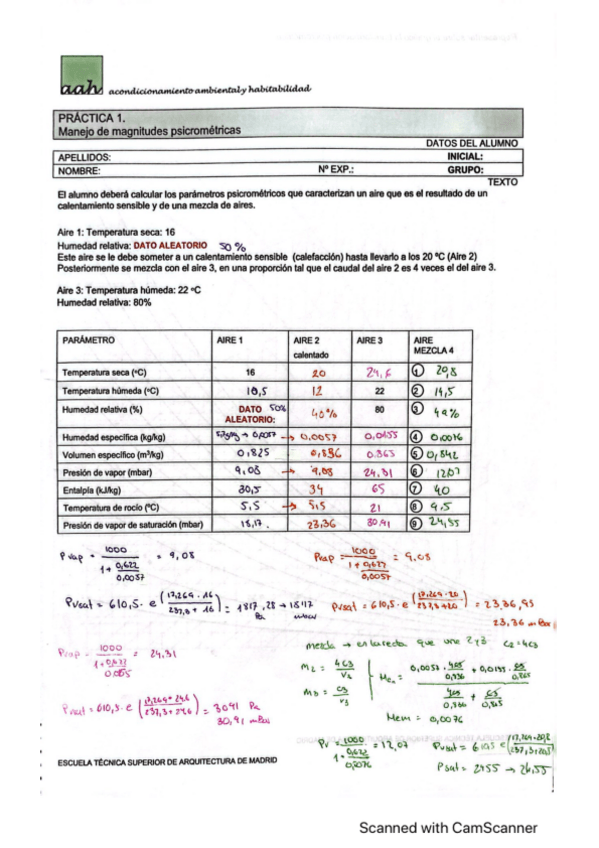 aah acondicionamiento ambiental y habitabilidad
PRÁCTICA 1.
Manejo de magnitudes psicrométricas
DATOS DEL ALUMNO
APELLIDOS: INICIAL:
NOMBRE: Nº EXP.: GRUPO:
TEXTO
El alumno deberá calcular los parámetros psicrométricos que caracterizan un aire que es el resultado de un
calentamiento sensible y de una mezcla de aires.
Aire 1: Temperatura seca: 16
Humedad relativa: DATO ALEATORIO 50 %
Este aire se le debe someter a un calentamiento sensible (calefacción) hasta llevarlo a los 20 ºC (Aire 2)
Posteriormente se mezcla con el aire 3, en una proporción tal que el caudal del aire 2 es 4 veces el del aire 3.
Aire 3: Temperatura húmeda: 22 ºC
Humedad relativa: 80%
PARÁMETRO AIRE 1 AIRE 2 calentado AIRE 3 AIRE MEZCLA 4
Temperatura seca (ºC) 16 20 24,6 1 20,8
Temperatura húmeda (ºC) 10,5 12 22 2 14,5
Humedad relativa (%) DATO ALEATORIO: 50% 40% 80 3 49%
Humedad especifica (kg/kg) → 0,0057 → 0,0057 0,0155 4 0,0076
Volumen especifico (m³/kg) 0,825 0,836 0.865 5 0,842
Presión de vapor (mbar) 9,08 → 9,08 24,31 6 12,07
Entalpía (kJ/kg) 30,5 34 65 7 40
Temperatura de rocío (ºC) 5,5 → 5,5 21 8 9,5
Presión de vapor de saturación (mbar) 18,17 23,36 30,91 9 24,55
Pvap = 1000 / (1 + 0,622/0,0057) = 9,08
Pvap = 1000 / (1 + 0,622/0,0057) = 9,08
Pvsat = 610,5 · e (17,269 · 16 / 237,3 + 16) = 1817,28 → 18,17
Pa mbar
Pvsat = 610,5 · e (17,269 · 20 / 237,3 + 20) = 23,36,95
23,36 mbar
Pvap = 1000 / (1 + 0,622/0,0155) = 24,31
mezcla → en la recta que une 2 y 3 C2 = 4C3
M2 = 4C3 / V2
M3 = C3 / V3
Pvsat = 610,5 · e (17,269 · 24,6 / 237,3 + 24,6) = 3091 Pa
30,91 mbar
Mem = 0,0076
Pv = 1000 / (1 + 0,622/0,0076) = 12,07
Psat = 2455 →
ESCUELA TÉCNICA SUPERIOR DE ARQUITECTURA DE MADRID
Scanned with CamScanner